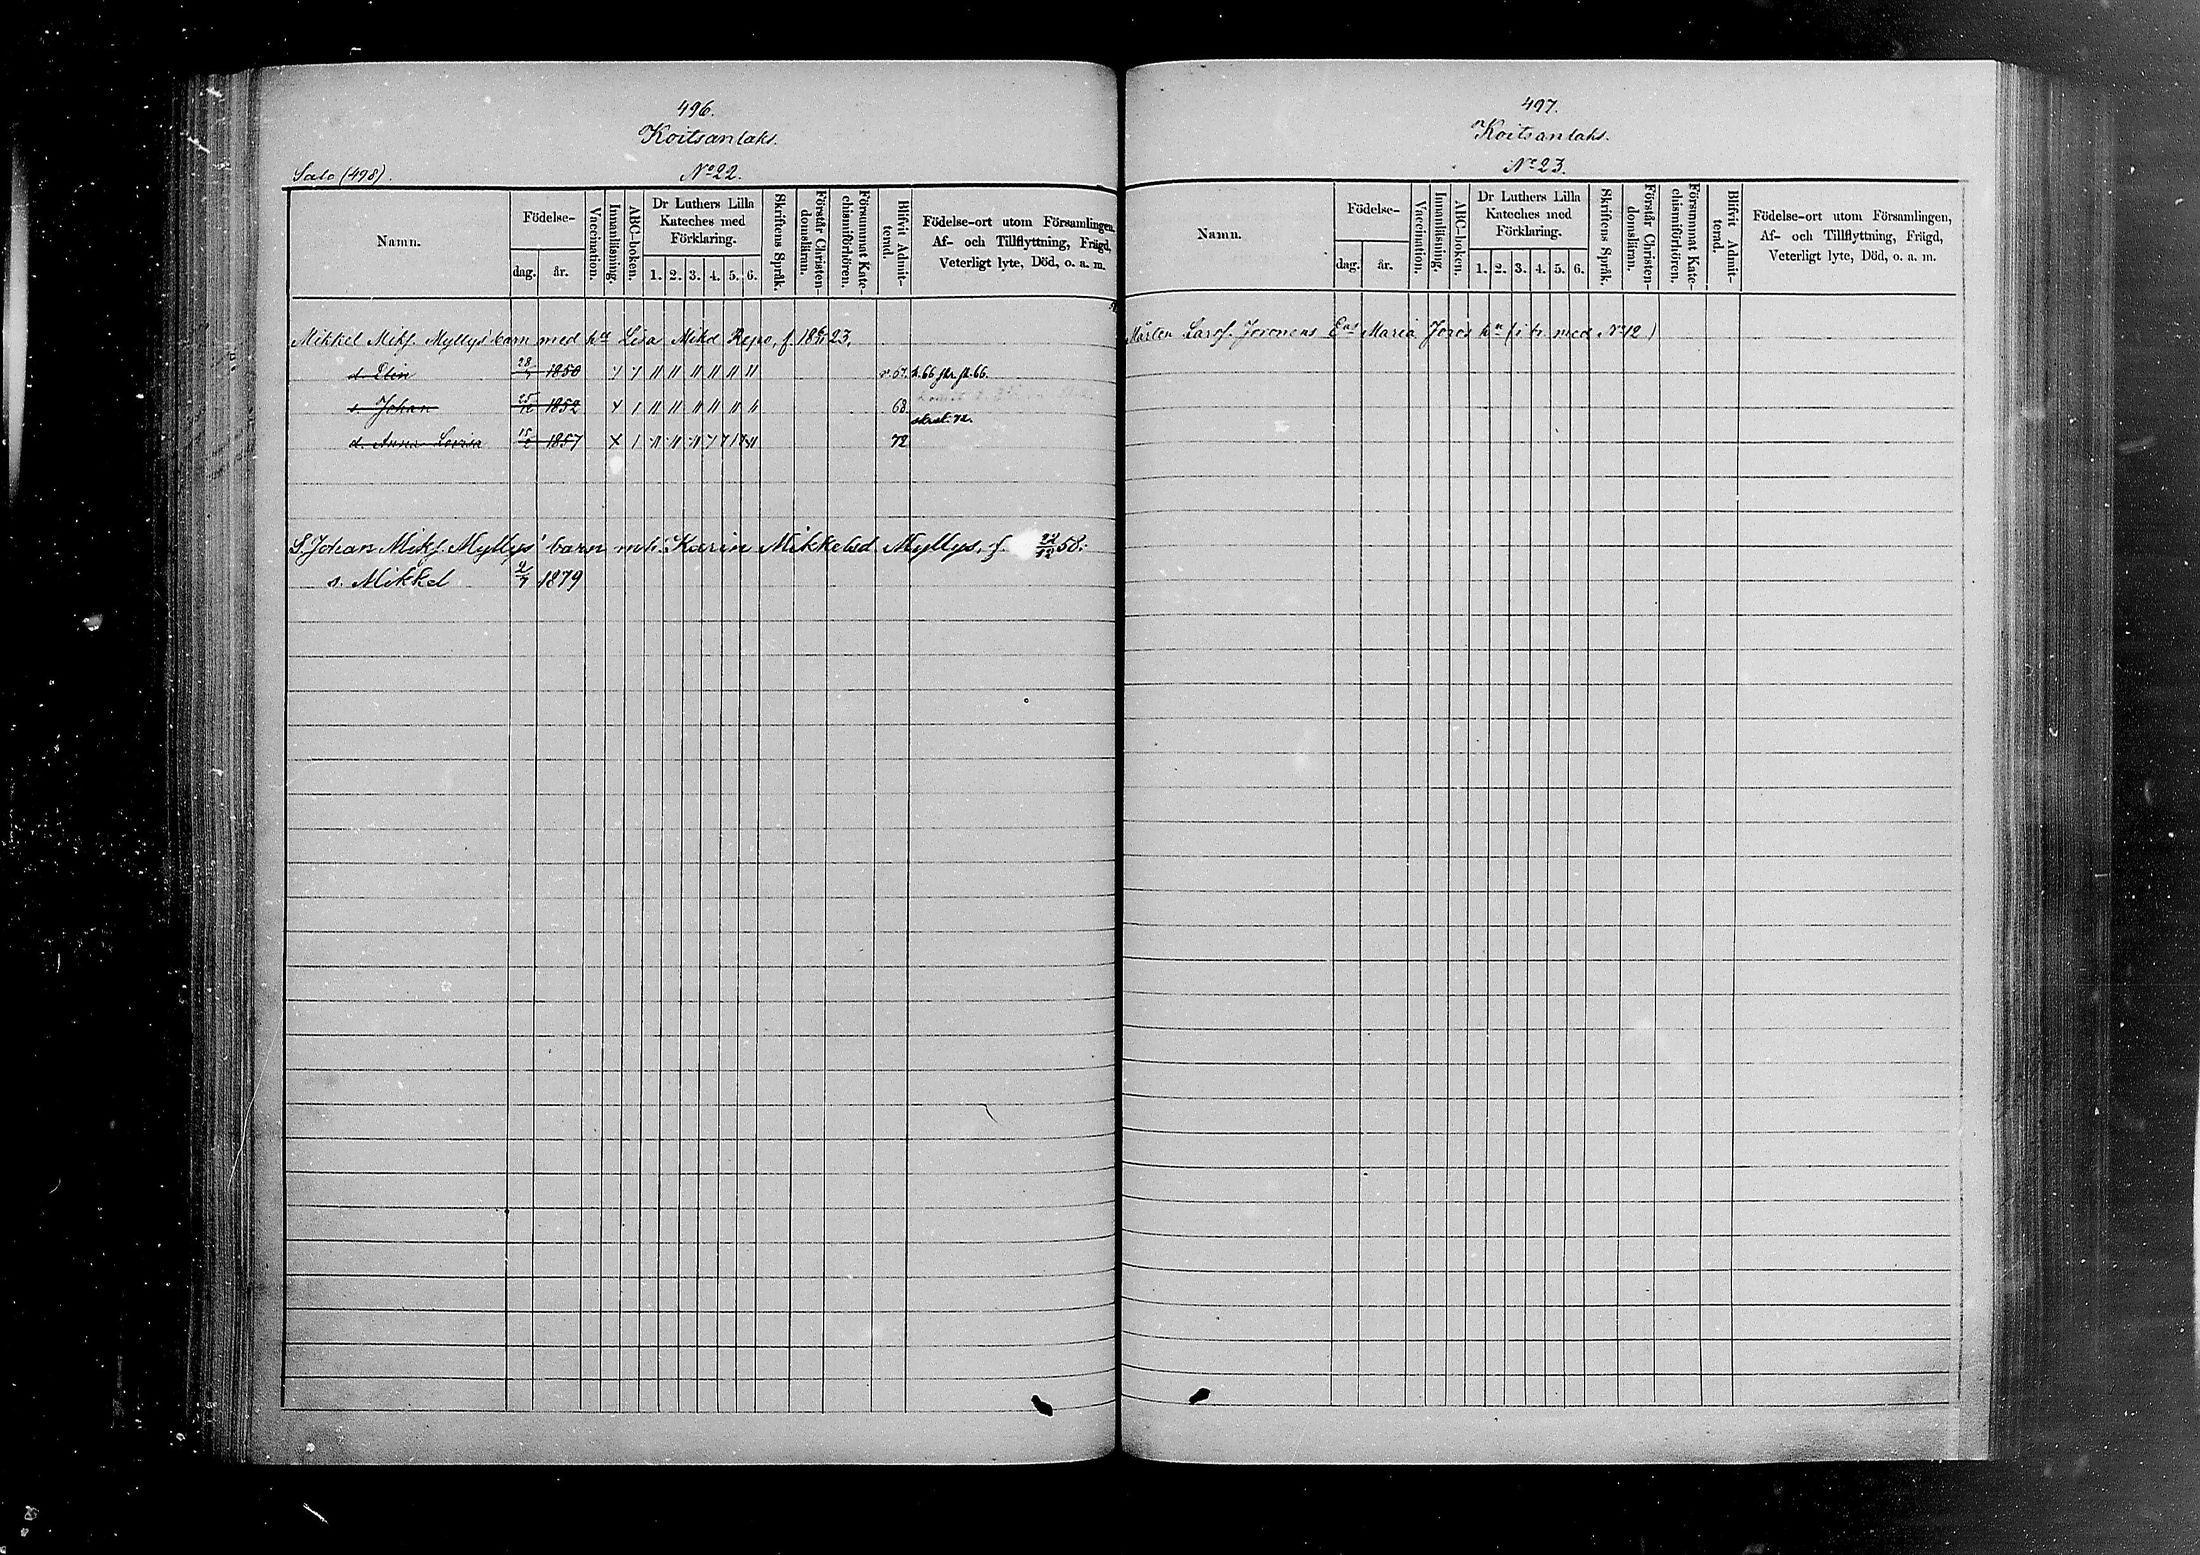 496.
Koitsanlaks.
Salo (498). No 22.
Namn. Födelse- dag. år. Vaccination. Innanläsning. ABC-boken. Dr Luthers Lilla Kateches med Förklaring. 1. 2. 3. 4. 5. 6. Skriftens Språk. Förstår Christendomsläran. Försummat Katechismiförhören. Blifvit Admitterad. Födelse-ort utom Församlingen, Af- och Tillflyttning, Frägd, Veterligt lyte, Död, o. a. m.
Mikkel Mikf. Myllys' barn med h. Lisa Mikd Repo, f. 18 23.
d. Elin 28 1850 67. 66.
s. Johan 25 1852 68.
72.
d. Anna Lovisa 15 1857 72
S. Johan Mikf. Myllys' barn m. h. Karin Mikkelsd. Myllys, f. 22/12 58:
s. Mikkel 2/7 1879
497.
Koitsanlaks.
No 23.
Namn. Födelse- dag. år. Vaccination. Innanläsning. ABC-boken. Dr Luthers Lilla Kateches med Förklaring. 1. 2. 3. 4. 5. 6. Skriftens Språk. Förstår Christendomsläran. Försummat Katechismiförhören. Blifvit Admitterad. Födelse-ort utom Församlingen, Af- och Tillflyttning, Frägd, Veterligt lyte, Död, o. a. m.
Mårten Larsf. Joronens Eas Maria Jores (i br. med No 12)